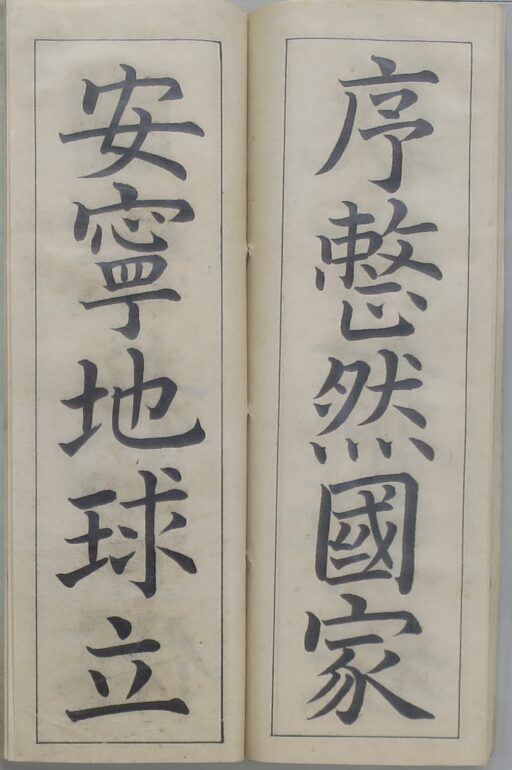 序整然國家
安寧地球立